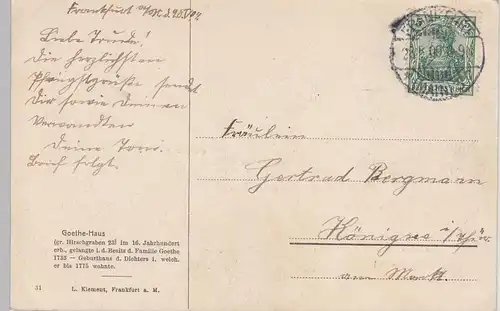 Frankfurt a/M. d.
Liebe Trude!
Die herzlichsten
Pfingstgrüße sendet
Dir sowie Deinen
Verwandten
Deine Toni.
Brief folgt.
Fräulein
Gertrud Bergmann
Königsee i/Thür
am Markt.
Goethe-Haus
(gr. Hirschgraben 23) im 16. Jahrhundert
erb., gelangte i. d. Besitz d. Familie Goethe
1733 — Geburthaus d. Dichters i. welch.
er bis 1775 wohnte.
31 L. Klement, Frankfort a. M.